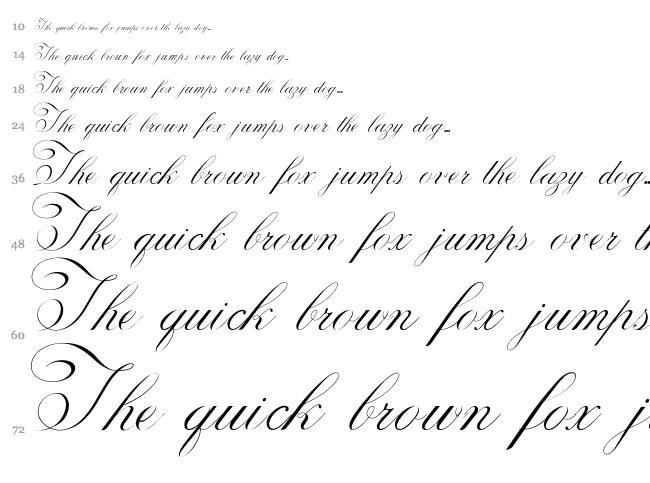 10 The quick brown fox jumps over the lazy dog...
14 The quick brown fox jumps over the lazy dog...
18 The quick brown fox jumps over the lazy dog...
24 The quick brown fox jumps over the lazy dog...
36 The quick brown fox jumps over the lazy dog..
48 The quick brown fox jumps over t
60 The quick brown fox jumps
72 The quick brown fox j